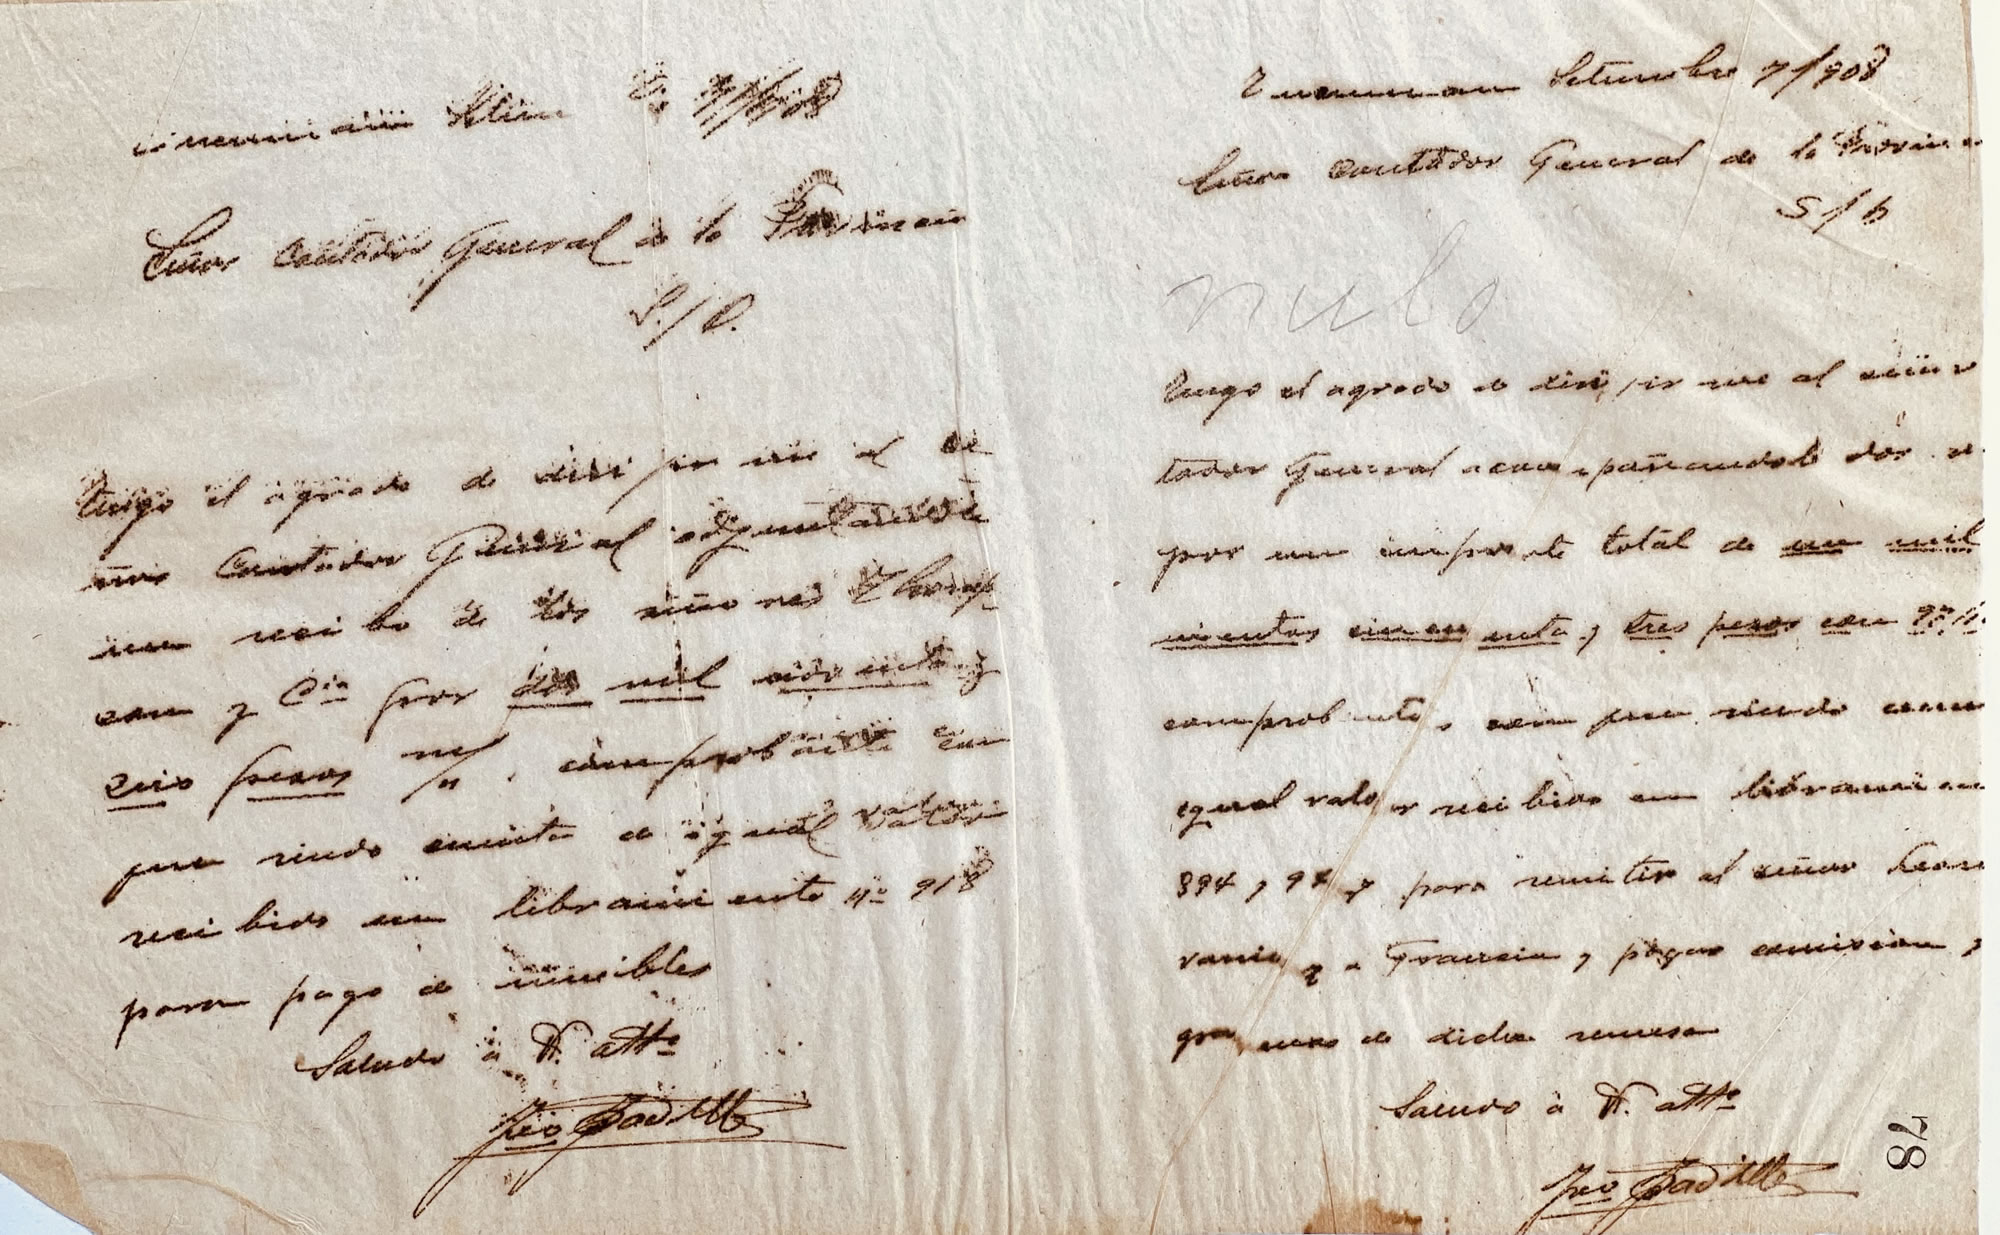 Tucuman Setiembre 7/908
Señor Contador General de la Provincia
S./D.
Tengo el agrado de dirijirme al Se
ñor Contador General adjuntandole
un recibo de los señores Thomp
son y Cia por dos mil ochenta y
seis pesos m/n, comprobante con
que rindo cuenta de igual valor
recibido en libramiento No 918
para pago de muebles
Saludo á V. atte
Fco Padilla
Tucuman Setiembre 7/908
Señor Contador General de la Provincia
S/D
nulo
Tengo el agrado de dirijirme al señor
tador General acompañandole dos
por un importe total de un mil
cientos cincuenta y tres pesos con 97
comprobantes con que rindo cuen
igual valor recibido en libramien
894 y 97 y para remitir al señor
á Francia y pagar comision y
de dicha remesa
Saludo á V. atte
Fco Padilla
78